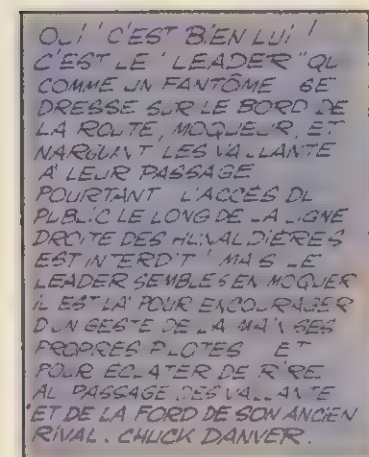 OUI ! C'EST BIEN LUI !
C'EST LE "LEADER" QUI
COMME UN FANTÔME SE
DRESSE SUR LE BORD DE
LA ROUTE, MOQUEUR, ET
NARGUANT LES VAILLANTE
A' LEUR PASSAGE
POURTANT L'ACCÈS DU
PUBLIC LE LONG DE LA LIGNE
DROITE DES HUNAUDIÈRES
EST INTERDIT ! MAIS LE
LEADER SEMBLE S'EN MOQUER
IL EST LA' POUR ENCOURAGER
D'UN GESTE DE LA MAIN SES
PROPRES PILOTES ET
POUR ECLATER DE RIRE
AU PASSAGE DES VAILLANTE
ET DE LA FORD DE SON ANCIEN
RIVAL. CHUCK DANVER.